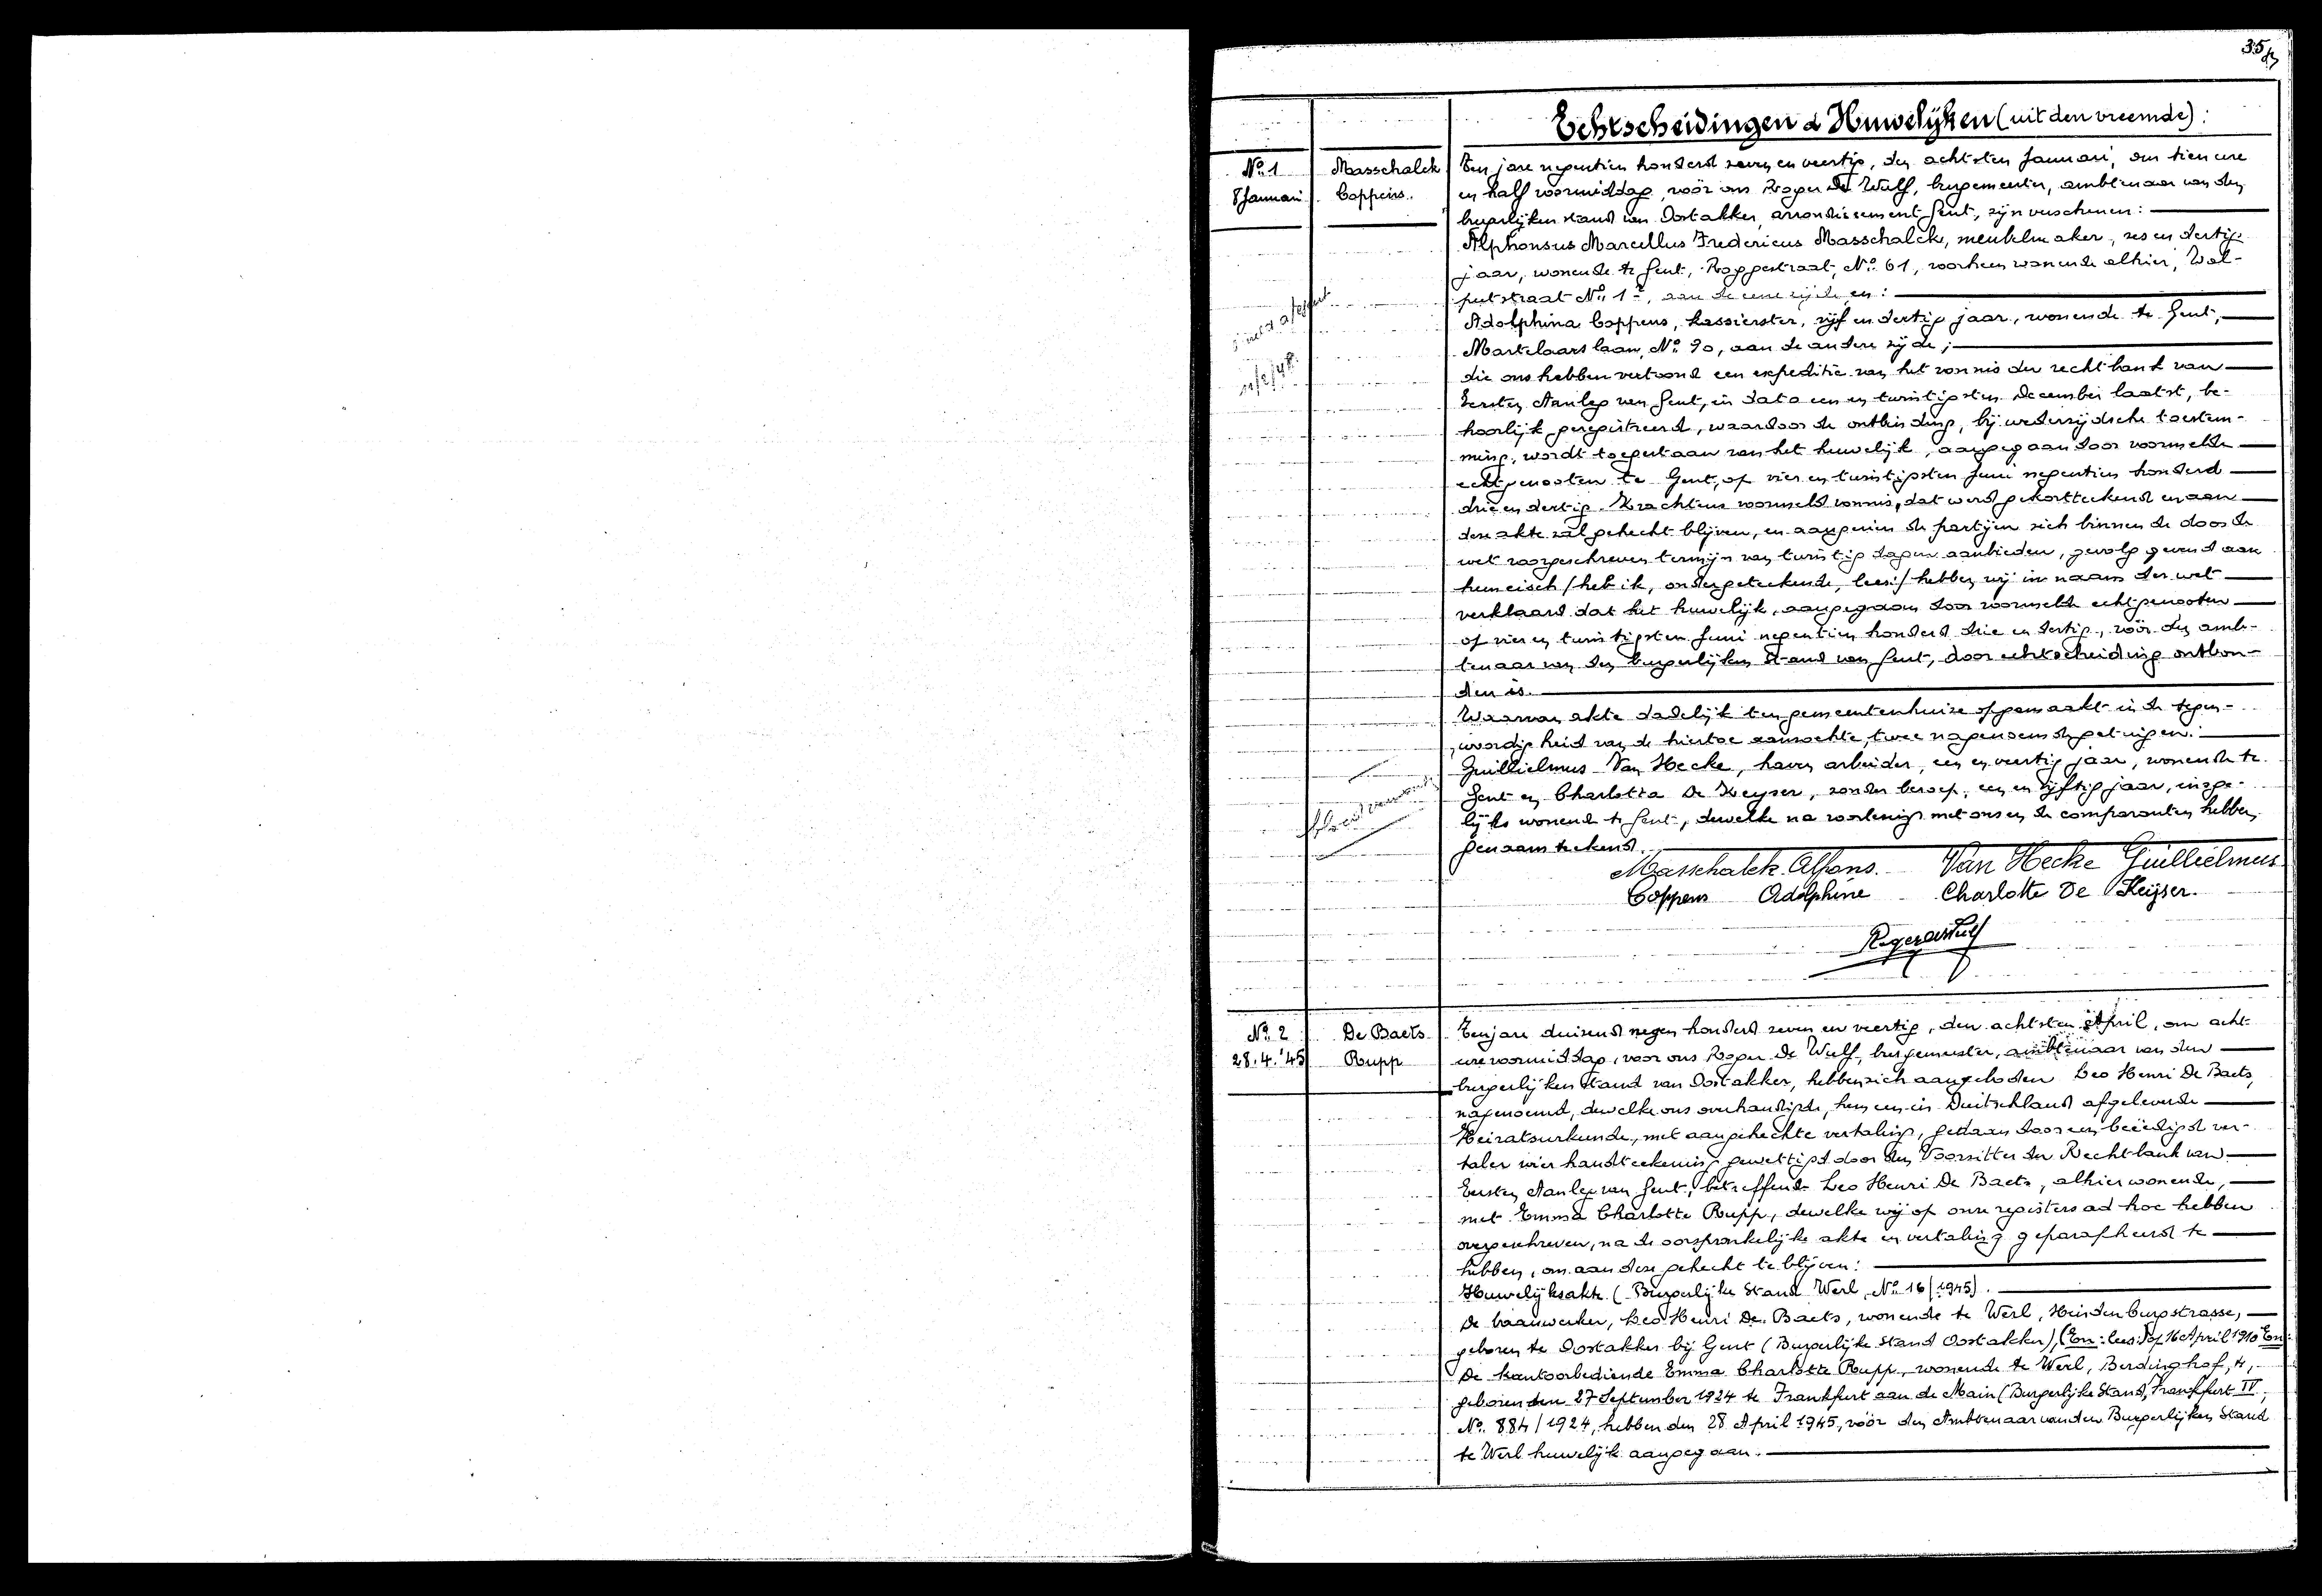 35
Echtscheidingen & Huwelijken (uit den vreemde):
No. 1
8 Januari
Masschalck
Coppens.
Ten jare negentien honderd zeven en veertig, den achtsten Januari, om tien ure
en half voormiddag, vóór ons Roger De Wulf, burgemeester, ambtenaar van den
burgerlijken stand van Oostakker, arrondissement Gent, zijn verschenen:
Alphonsus Marcellus Fredericus Masschalck, meubelmaker, zes en dertig
jaar, wonende te Gent, Roggestraat, No. 61, voorheen wonende alhier, Wol-
putstraat No. 1, aan de eene zijde, en:
Adolphina Coppens, kassierster, vijf en dertig jaar, wonende te Gent,
Martelaarslaan, No. 90, aan de andere zijde;
die ons hebben vertoond een expeditie van het vonnis der rechtbank van
Eersten Aanleg van Gent, in dato een en twintigsten December laatst, be-
hoorlijk geregistreerd, waardoor de ontbinding, bij wederzijdsche toestem-
ming, wordt toegestaan van het huwelijk, aangegaan door voormelde
echtgenooten te Gent, op vier en twintigsten Juni negentien honderd
drie en dertig. Krachtens voormeld vonnis, dat werd gekortteekend en aan
deze akte zal gehecht blijven, en aangezien de partijen zich binnen de door de
wet voorgeschreven termijn van twintig dagen aanbieden, gevolg gevend aan
hun eisch /heb ik, ondergeteekende, lees:/ hebben wij in naam der wet
verklaard dat het huwelijk, aangegaan door voormelde echtgenooten
op vier en twintigsten Juni negentien honderd drie en dertig, vóór den amb-
tenaar van den burgerlijken stand van Gent, door echtscheiding ontbon-
den is.
Waarvan akte dadelijk ten gemeentenhuize opgemaakt in de tegen-
woordigheid van de hiertoe aanzochte, twee nagenoemde getuigen:
Guillielmus Van Hecke, haven arbeider, een en veertig jaar, wonende te
Gent en Charlotta De Keyser, zonder beroep, een en vijftig jaar, insge-
lijks wonende te Gent, dewelke na voorlezing met ons en de comparanten hebben
genaamteekend.
Masschalck Alfons. Van Hecke Guillielmus
Coppens Adolphine Charlotte De Keijser.
Roger De Wulf
No. 2
28.4.'45
De Baets
Rupp
Ten jare duizend negen honderd zeven en veertig, den achtsten April, om acht
ure voormiddag, voor ons Roger De Wulf, burgemeester, ambtenaar van den
burgerlijken stand van Oostakker, hebben zich aangeboden Leo Henri De Baets,
nagenoemd, dewelke ons overhandigde, hun een in Duitschland afgeleverde
Heiratsurkunde, met aangehechte vertaling, gedaan door een beëedigd ver-
taler wier handteekening gewettigd door den Voorzitter der Rechtbank van
Eersten Aanleg van Gent, betreffende Leo Henri De Baets, alhier wonende,
met Emma Charlotte Rupp, dewelke wij op onze registers ad hoc hebben
overgeschreven, na de oorspronkelijke akte en vertaling geparafheerd te
hebben, om aan deze gehecht te blijven:
Huwelijksakte (Burgerlijke Stand Werl, No. 16/1945).
De baanwerker, Leo Henri De Baets, wonende te Werl, Heindenburgstrasse,
geboren te Oostakker bij Gent (Burgerlijke Stand Oostakker), (En: lees:) op 16 April 1910 En:
De kantoorbediende Emma Charlotte Rupp, wonende te Werl, Berdinghof, 4,
geboren den 27 September 1924 te Frankfurt aan de Main (Burgerlijke Stand, Frankfurt IV,
No. 884/1924, hebben den 28 April 1945, vóór den Ambtenaar van den Burgerlijken Stand
te Werl huwelijk aangegaan.